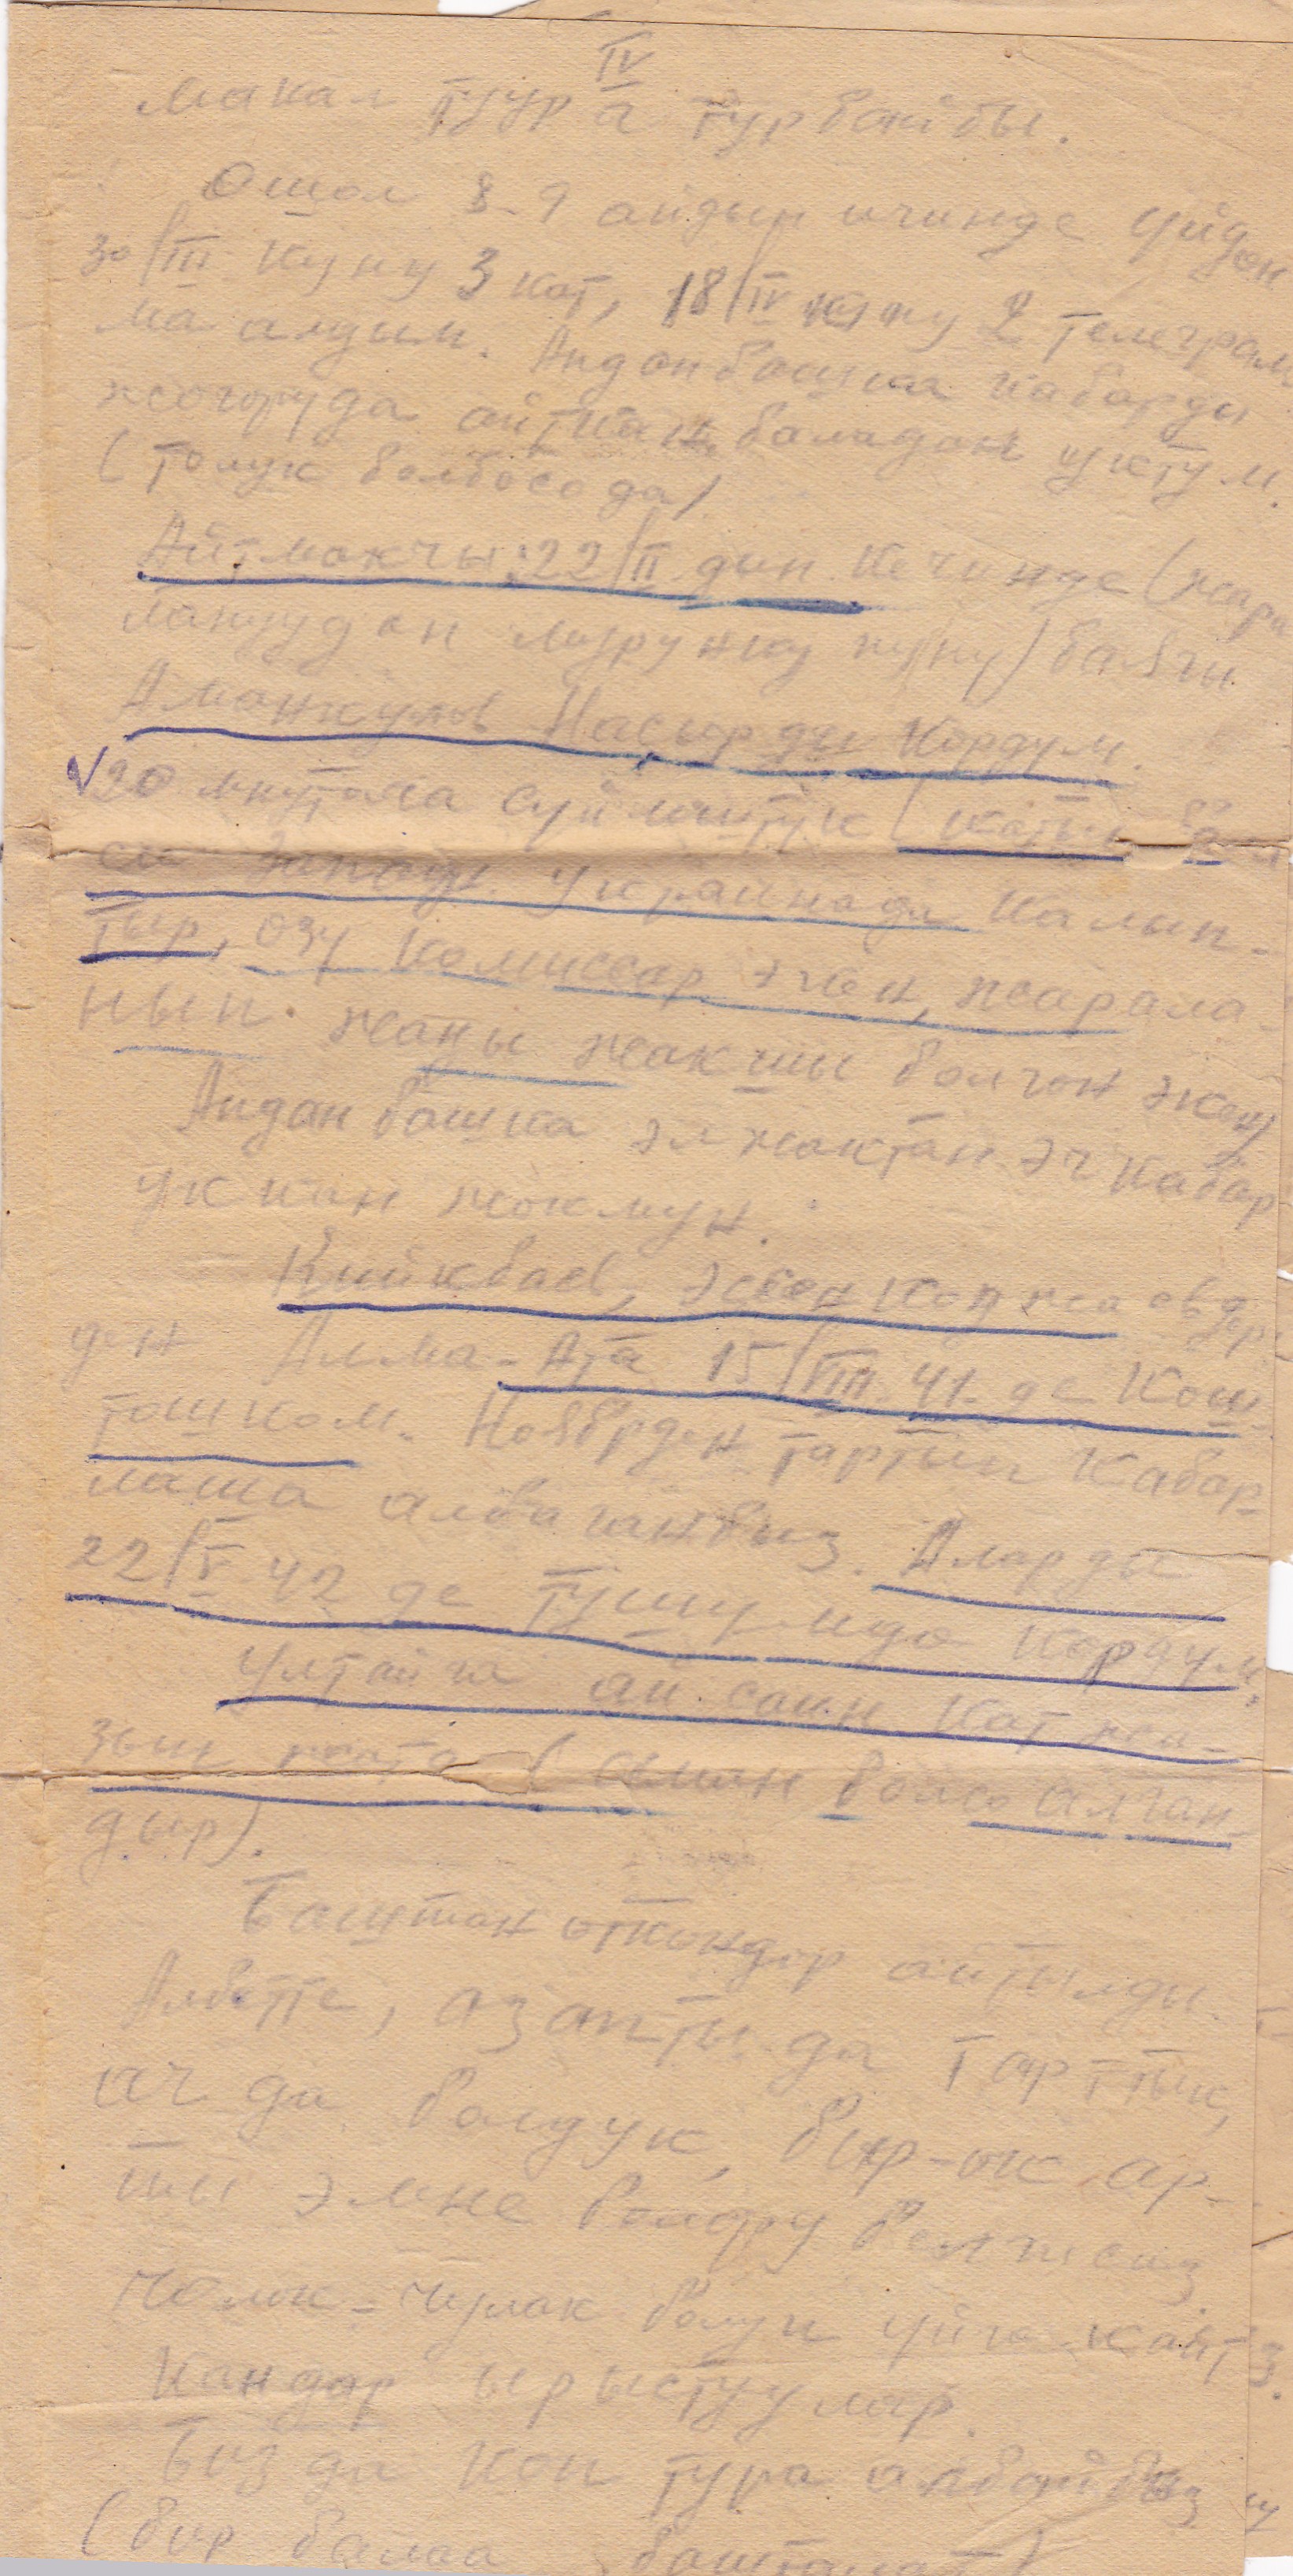 IV
макал туура турбайбы.
Ошол 8-9 айдын ичинде үйдөн
30/III күнү 3 кат, 18/IV күнү 2 телеграм
ма алдым. Андан башка кабарды
жогоруда айткан баладан уктум.
(толук болбосо да)
Айтмакчы: 22/II дин кечинде (жара
лануудан мурунку күнү) баягы
Аманкулов Насырды көрдүм.
20 минутача сүйлөштүк (катын ба
ласы Украинада калып-
тыр, өзү комиссар экен, жарала-
нып жаңы жакшы болгон экен)
Андан башка эл жактан эч кабар
уккан жокмун.
Кийикбаев, Эсенкожоевдер
ден Алма-Ата 15/VIII 41 де кош-
тошком. Ноябрден тартып кабар-
лаша албаганбыз. Аларды
22/V 42 де түшүмдө көрдүм.
Ултайга ай сайын кат жа-
зып (аман болсо алган
дыр).
Баштан өткөндөр айтылды.
Албетте, азапты да тарттык,
ач да болдук, бирок ар-
ты эмне болору белгисиз
Чолок-чулак болуп үйгө кайт
кандар ырыстуулар.
Биз да көп тура албайбыз
(бир балаа башталат)